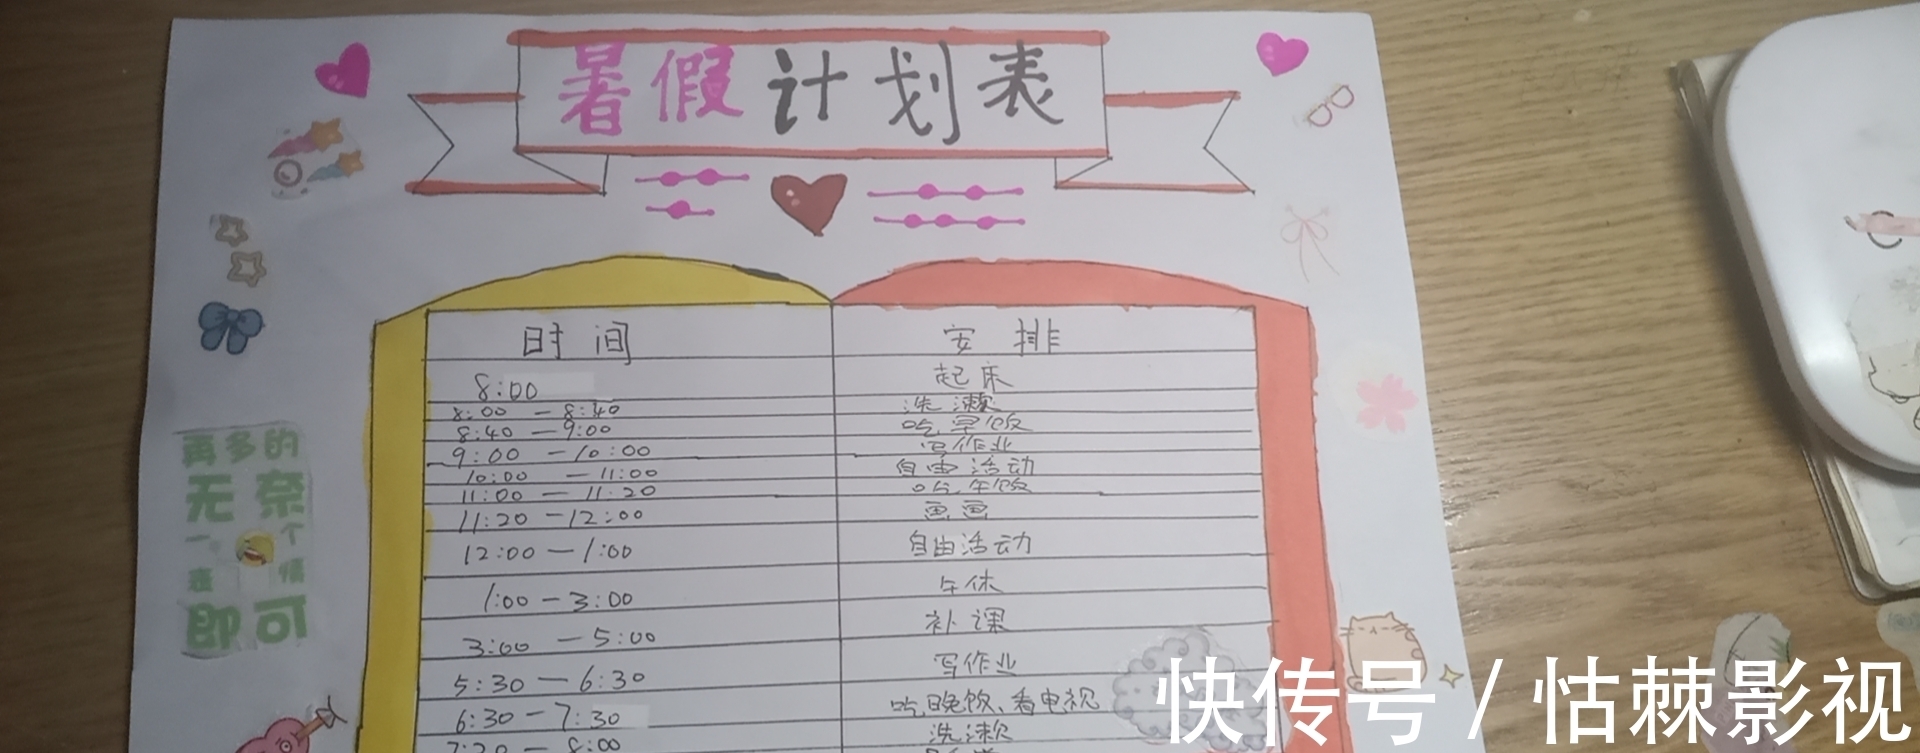 暑假计划表
时间 安排
8:00 起床
8:00 — 8:40 洗漱
8:40 — 9:00 吃早饭
9:00 — 10:00 写作业
10:00 — 11:00 自由活动
11:00 — 11:20 吃午饭
11:20 — 12:00 画画
12:00 — 1:00 自由活动
1:00 — 3:00 午休
3:00 — 5:00 补课
5:30 — 6:30 写作业
6:30 — 7:30 吃晚饭、看电视
8:00 洗漱
再多的
无奈
一个
表情
即可
快传号 / 怙棘影视